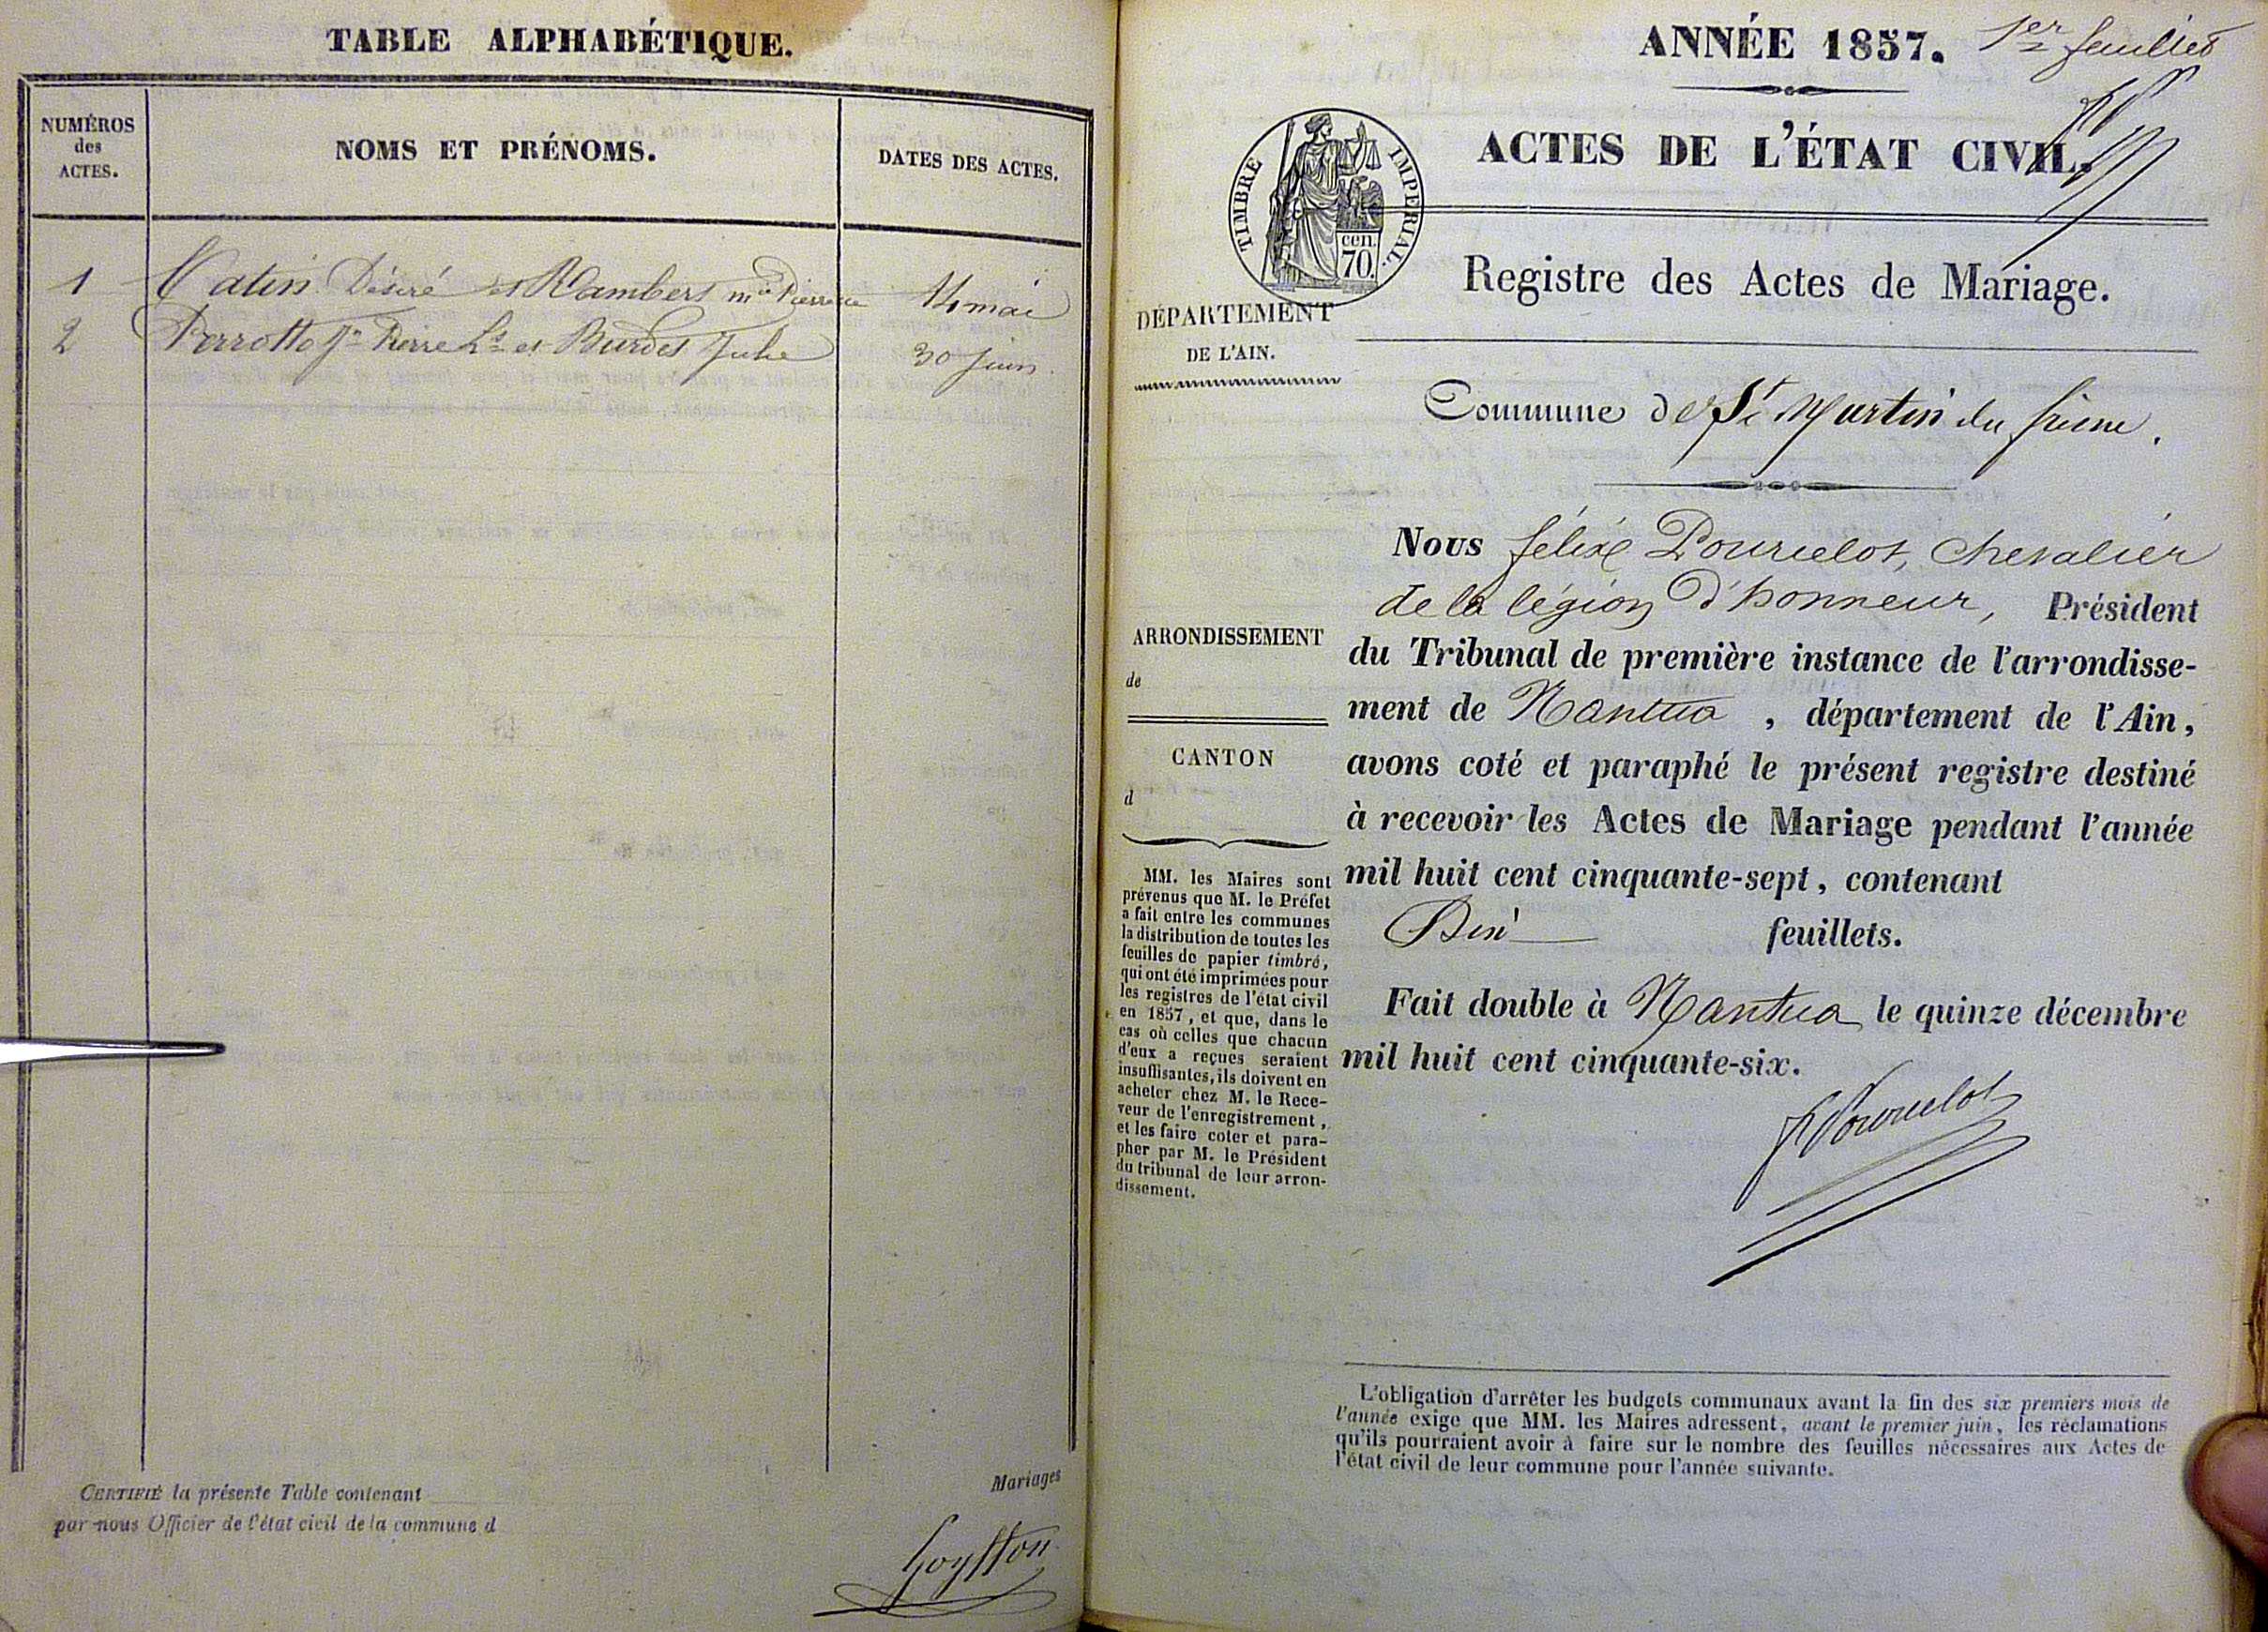 TABLE ALPHABÉTIQUE.
NUMÉROS
des
ACTES.
NOMS ET PRÉNOMS.
DATES DES ACTES.
1 Catin Désiré et Rambert mie Pierrette 14 mai
2 Perrotto Jn Pierre Ls et Burdet Julie 30 juin.
CERTIFIÉ la présente Table contenant
Mariages
par nous Officier de l'état civil de la commune d
ANNÉE 1857. 1er feuillet
ACTES DE L'ÉTAT CIVIL.
TIMBRE IMPÉRIAL.
cen.
70.
Registre des Actes de Mariage.
DÉPARTEMENT
DE L'AIN.
Commune de St Martin du frêne.
Nous félix Pourcelot, Chevalier
de la légion d'honneur, Président
du Tribunal de première instance de l'arrondisse-
ment de Nantua, département de l'Ain,
avons coté et paraphé le présent registre destiné
à recevoir les Actes de Mariage pendant l'année
mil huit cent cinquante-sept, contenant
feuillets.
Fait double à Nantua le quinze décembre
mil huit cent cinquante-six.
F Pourcelot
ARRONDISSEMENT
de
CANTON
d
MM. les Maires sont
prévenus que M. le Préfet
a fait entre les communes
la distribution de toutes les
feuilles de papier timbré,
qui ont été imprimées pour
les registres de l'état civil
en 1857, et que, dans le
cas où celles que chacun
d'eux a reçues seraient
insuffisantes, ils doivent en
acheter chez M. le Rece-
veur de l'enregistrement,
et les faire coter et para-
pher par M. le Président
du tribunal de leur arron-
dissement.
L'obligation d'arrêter les budgets communaux avant la fin des six premiers mois de
l'année exige que MM. les Maires adressent, avant le premier juin, les réclamations
qu'ils pourraient avoir à faire sur le nombre des feuilles nécessaires aux Actes de
l'état civil de leur commune pour l'année suivante.